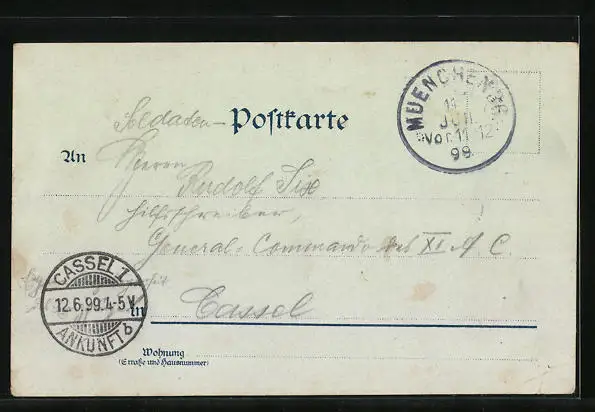 Soldaten-Postkarte
MUENCHEN
11
JUN.
Vor. 11-12
99
An
Herrn
Rudolf
Hilfsschreiber,
General-Commando des XI. A. C.
in Cassel
CASSEL 1
12.6.99.4-5V
ANKUNFT b
Wohnung
(Straße und Hausnummer)